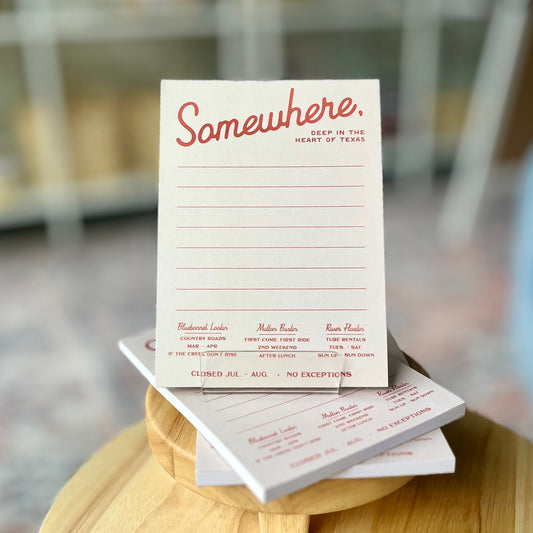 Somewhere,
DEEP IN THE
HEART OF TEXAS
Bluebonnet Lookin' Mutton Bustin' River Floatin'
COUNTRY ROADS FIRST COME, FIRST RIDE TUBE RENTALS
MAR - APR 2ND WEEKEND TUES. - SAT.
IF THE CREEK DON'T RISE AFTER LUNCH SUN UP - SUN DOWN
CLOSED JUL. - AUG. · NO EXCEPTIONS
River Floatin'
TUBE RENTALS
TUES. - SAT.
SUN UP - SUN DOWN
Mutton Bustin'
FIRST COME, FIRST RIDE
2ND WEEKEND
AFTER LUNCH
Bluebonnet Lookin'
COUNTRY ROADS
MAR - APR
IF THE CREEK DON'T RISE
CLOSED JUL. - AUG. · NO EXCEPTIONS
EXCEPTIONS